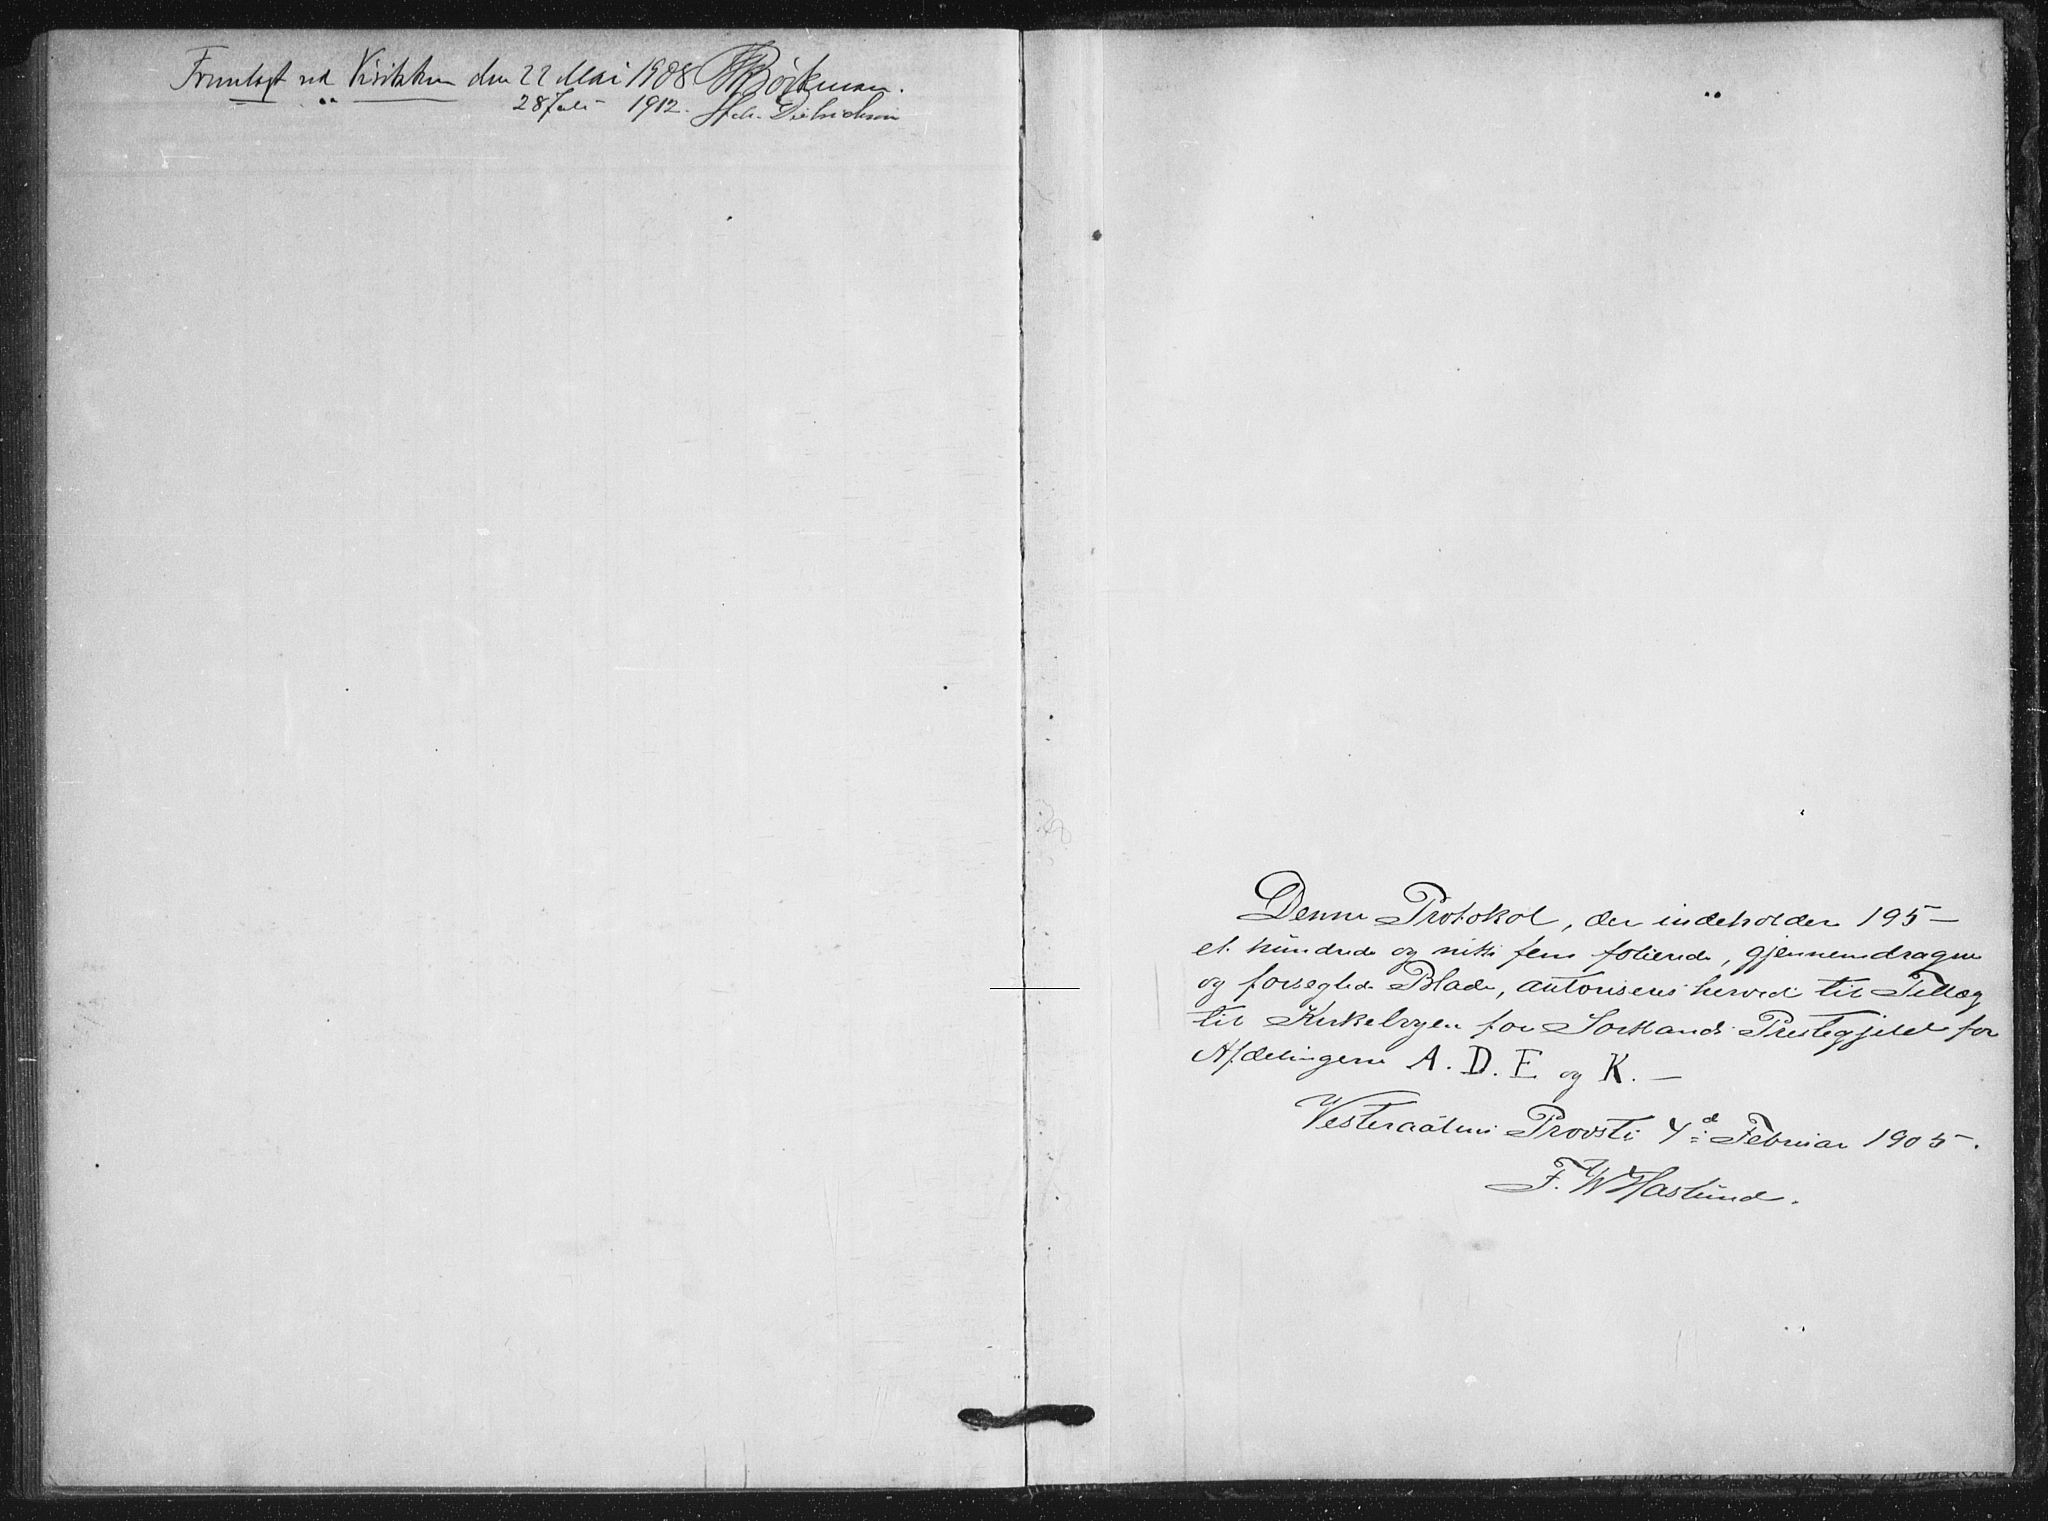 Fremlagt ved Visitatsen den 22 Mai 1908 Bøckman.
" 28 Juli 1912. Dietrichson
Denne Protokol, der indeholder 195 –
et hundrede og nitti fem folierede, gjennemdragne
og forseglede Blade, autoriseres herved til Tillæg
til Kirkebogen for Sortlands Prestegjeld for
Afdelingerne A. D. E og K. –
Vesteraalens Provsti 4d Februar 1905.
F. W Haslund.